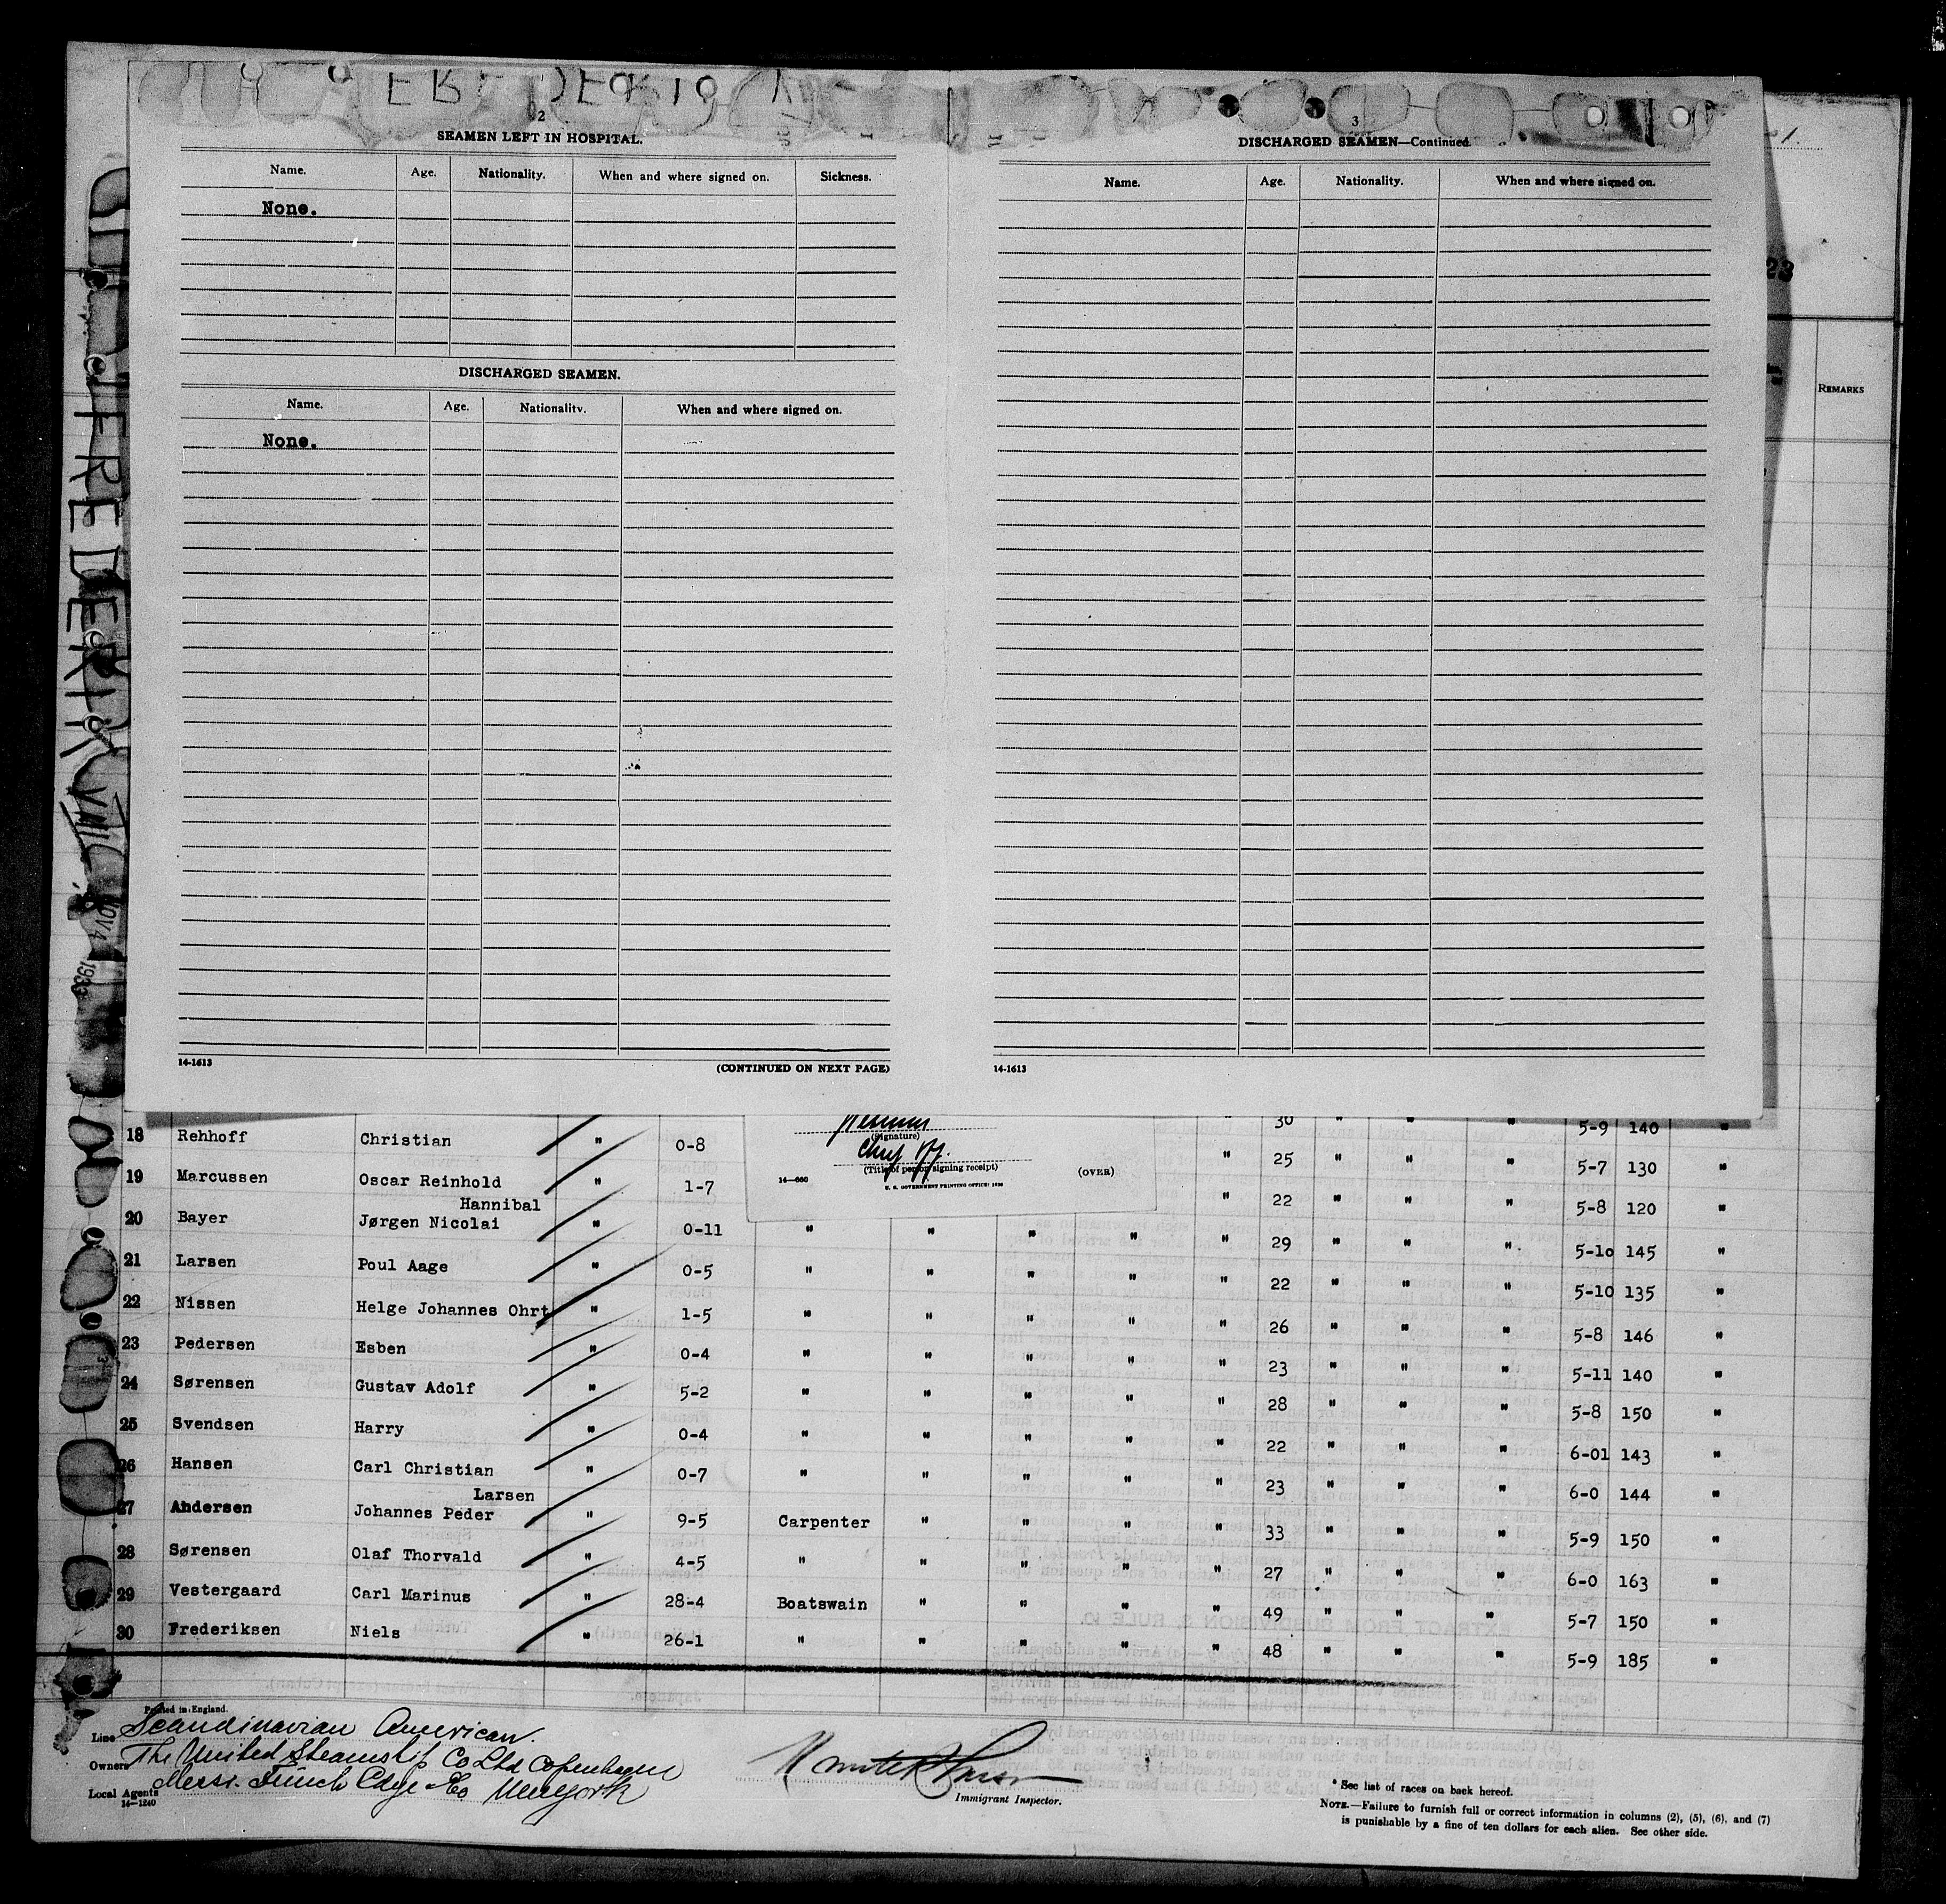 FREDERIK VIII
NOV 4 1933
2
SEAMEN LEFT IN HOSPITAL.
Name. Age. Nationality. When and where signed on. Sickness.
None.
DISCHARGED SEAMEN.
Name. Age. Nationality. When and where signed on.
None.
14-1613 (CONTINUED ON NEXT PAGE)
3
DISCHARGED SEAMEN—Continued.
Name. Age. Nationality. When and where signed on.
14-1613
23
REMARKS
(Signature)
(Title of person signing receipt)
14—660 (OVER)
U. S. GOVERNMENT PRINTING OFFICE: 1930
30 " " " 5-9 140 "
18 Rehhoff Christian " 0-8 " 25 " " " 5-7 130 "
19 Marcussen Oscar Reinhold " 1-7 " 22 " " " 5-8 120 "
Hannibal
20 Bayer Jørgen Nicolai " 0-11 " " " " " 29 " " " 5-10 145 "
21 Larsen Poul Aage " 0-5 " " " " " 22 " " " 5-10 135 "
22 Nissen Helge Johannes Ohrt " 1-5 " " " " " 26 " " " 5-8 146 "
23 Pedersen Esben " 0-4 " " " " " 23 " " " 5-11 140 "
24 Sørensen Gustav Adolf " 5-2 " " " " " 28 " " " 5-8 150 "
25 Svendsen Harry " 0-4 " " " " " 22 " " " 6-01 143 "
26 Hansen Carl Christian " 0-7 " " " " " 23 " " " 6-0 144 "
Larsen
27 Andersen Johannes Peder " 9-5 Carpenter " " " " 33 " " " 5-9 150 "
28 Sørensen Olaf Thorvald " 4-5 " " " " " 27 " " " 6-0 163 "
29 Vestergaard Carl Marinus " 28-4 Boatswain " " " " 49 " " " 5-7 150 "
30 Frederiksen Niels " 26-1 " " " " " 48 " " " 5-9 185 "
Printed in England.
Line Scandinavian American.
Owners The United Steamship Co Ltd Copenhagen
Local Agents Messr. Funch Edye & Co New York
14-1240
Immigrant Inspector.
* See list of races on back hereof.
NOTE.—Failure to furnish full or correct information in columns (2), (5), (6), and (7)
is punishable by a fine of ten dollars for each alien. See other side.